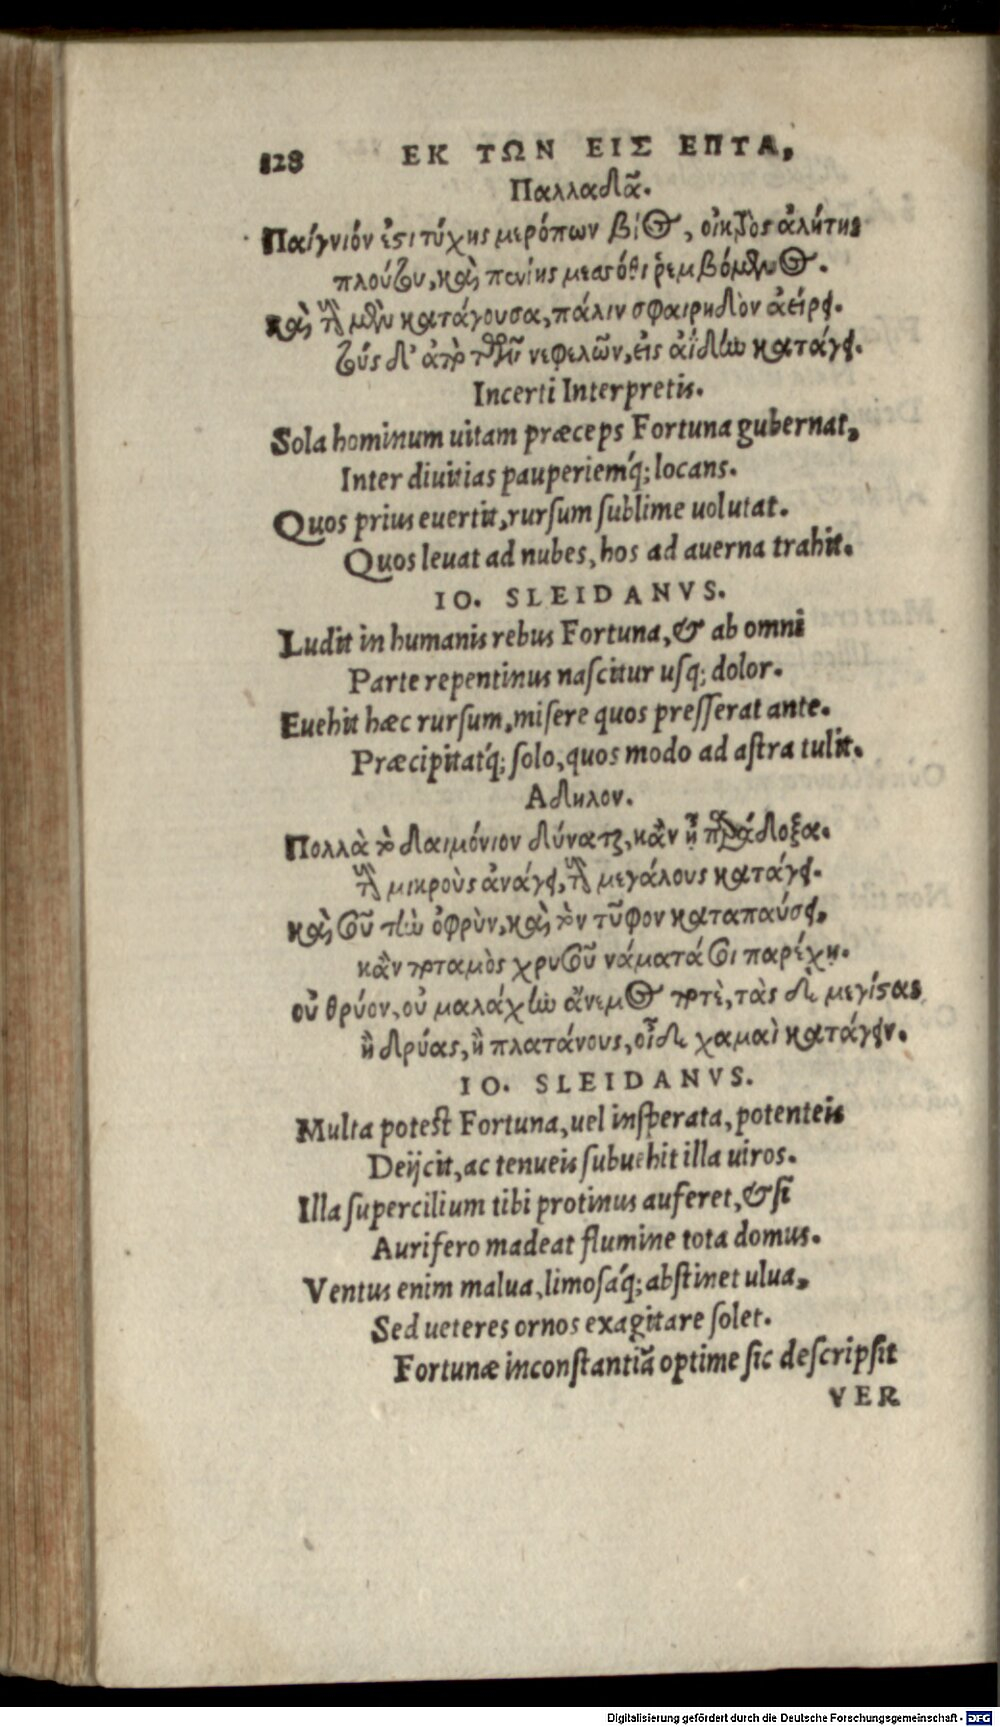 128 ΕΚ ΤΩΝ ΕΙΣ ΕΠΤΑ,
Παλλαδᾶ.
Παίγνιόν ἐστι τύχης μερόπων βίος, οἰκτρὸς ἀλήτης
πλούτου, καὶ πενίης μεσσόθι ῥεμβόμενος.
καὶ τοὺς μὲν κατάγουσα, πάλιν σφαιρηδὸν ἀείρει.
τοὺς δ' ἀπὸ τῶν νεφελῶν, εἰς ἀΐδην κατάγει.
Incerti Interpretis.
Sola hominum uitam præceps Fortuna gubernat,
Inter diuitias pauperieḿq; locans.
Quos prius euertit, rurſum ſublime uolutat.
Quos leuat ad nubes, hos ad auerna trahit.
IO. SLEIDANVS.
Ludit in humanis rebus Fortuna, & ab omni
Parte repentinus naſcitur uſq; dolor.
Euehit hæc rurſum, miſere quos preſſerat ante.
Præcipitat́q; ſolo, quos modo ad aſtra tulit.
Αδηλον.
Πολλὰ τὸ δαιμόνιον δύναται, κἂν ᾖ παράδοξα.
τοὺς μικροὺς ἀνάγει, τοὺς μεγάλους κατάγει.
καὶ σοῦ τὴν ὀφρὺν, καὶ τὸν τῦφον καταπαύσει,
κἂν ποταμὸς χρυσοῦ νάματά σοι παρέχῃ.
οὐ θρύον, οὐ μαλάχην ἄνεμος ποτὲ, τὰς δὲ μεγίστας
ἢ δρύας, ἢ πλατάνους, οἶδε χαμαὶ κατάγειν.
IO. SLEIDANVS.
Multa poteſt Fortuna, uel inſperata, potenteis
Deijcit, ac tenueis ſubuehit illa uiros.
Illa ſupercilium tibi protinus auferet, & ſi
Aurifero madeat flumine tota domus.
Ventus enim malua, limoſá́q; abſtinet ulua,
Sed ueteres ornos exagitare ſolet.
Fortunæ inconſtantiã optime ſic deſcripſit
VER
Digitalisierung gefördert durch die Deutsche Forschungsgemeinschaft - DFG